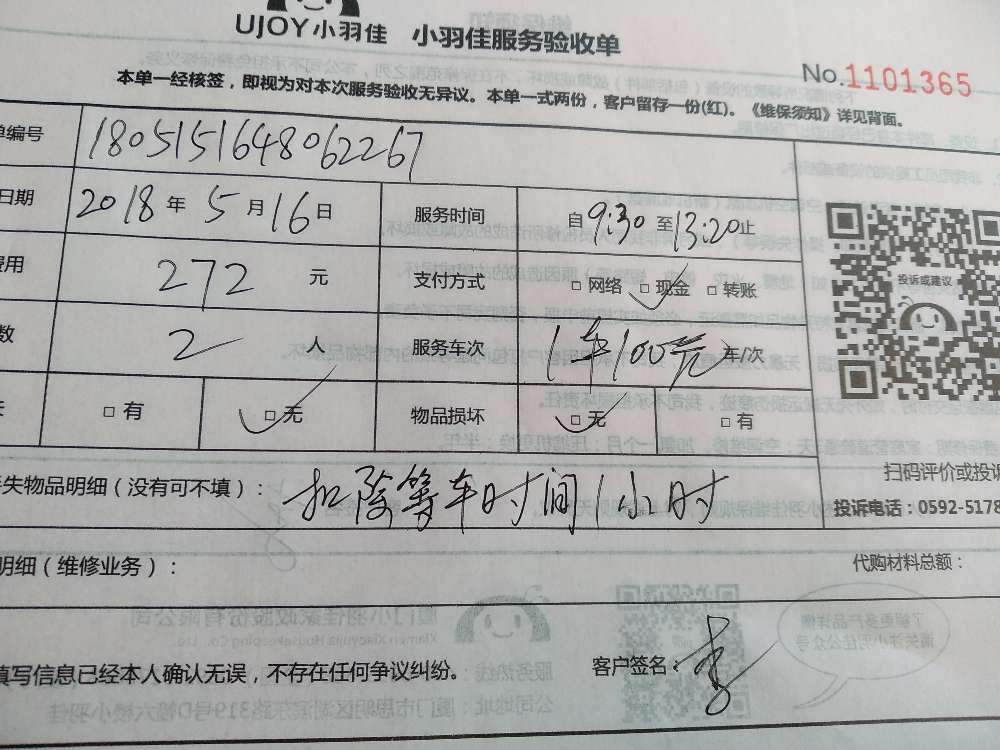 UJOY小羽佳 小羽佳服务验收单
No.1101365
本单一经核签，即视为对本次服务验收无异议。本单一式两份，客户留存一份(红)。《维保须知》详见背面。
单编号 1805151648062267
日期 2018 年 5 月 16 日 服务时间 自 9:30 至 13:20 止
费用 272 元 支付方式 □ 网络 □ 现金 □ 转账
数 2 人 服务车次 1车100元 车/次
□ 有 □ 无 物品损坏 □ 无 □ 有
投诉或建议
扫码评价或投诉
失物品明细（没有可不填）： 扣除等车时间1小时
投诉电话：0592-5178
明细（维修业务）： 代购材料总额：
填写信息已经本人确认无误，不存在任何争议纠纷。 客户签名：